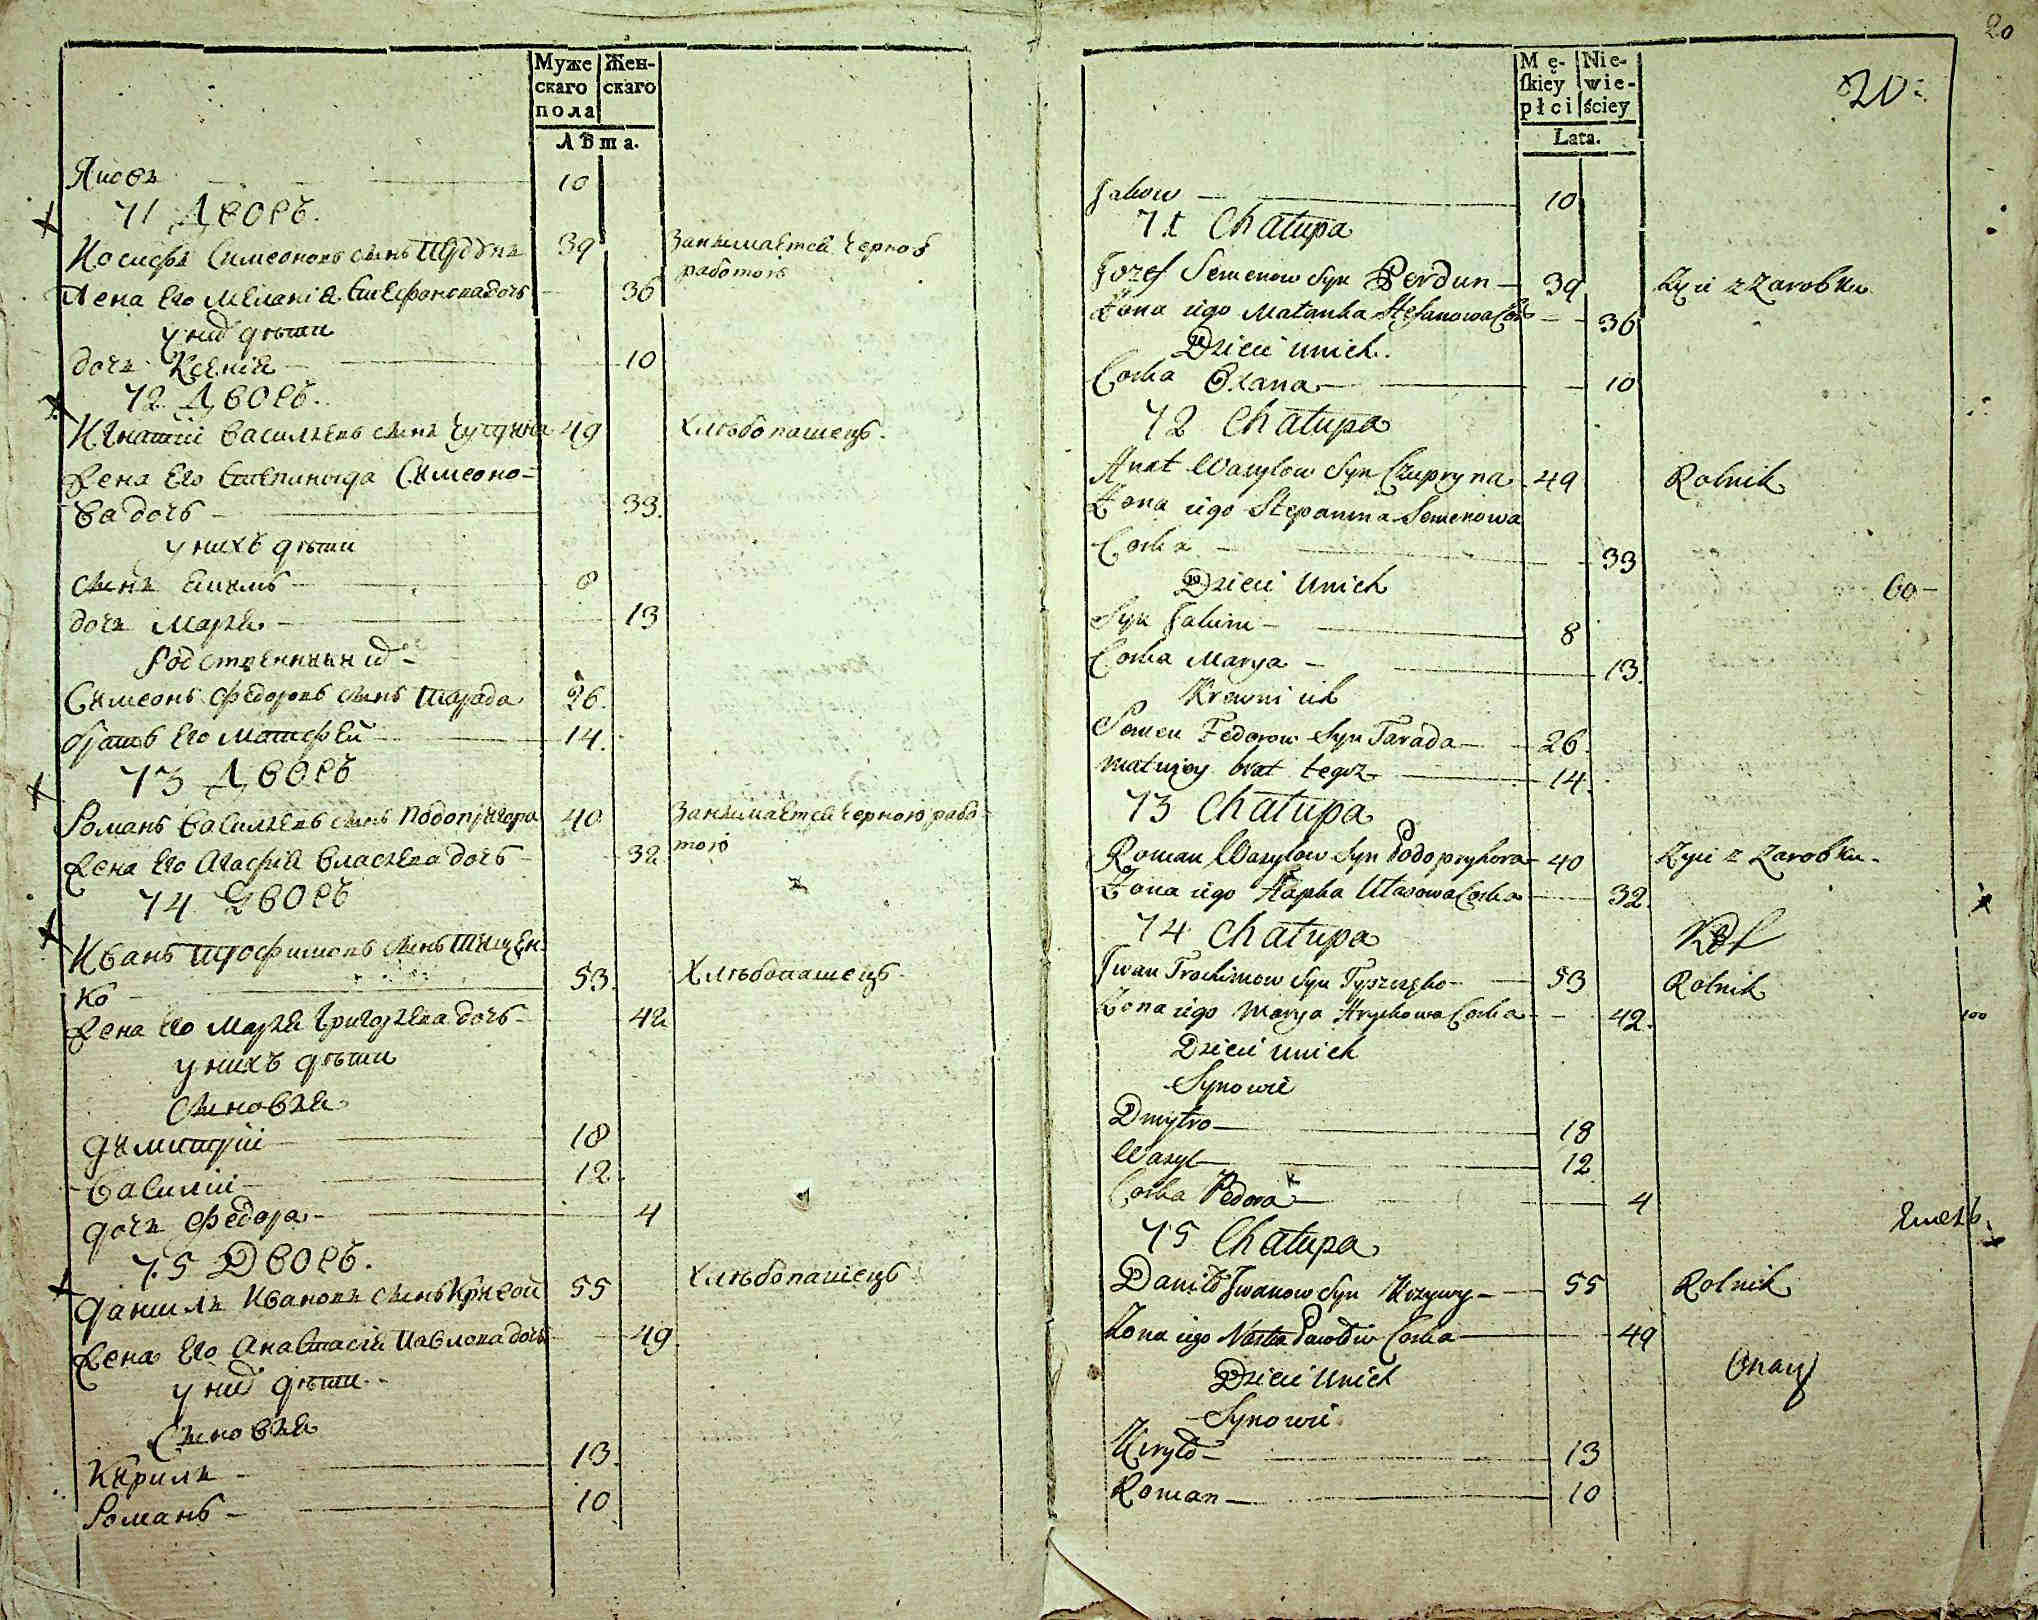 Муже Жен-
скаго скаго
пола
Лѣта.
Яковъ 10
71 Дворъ.
Иосифъ Симеоновъ сынъ Пердунъ 39 Занимается черною
работою
Жена его Меланія Стефанова дочь 36
у них дѣти
дочь Ксенія 10
72 Дворъ.
Игнатій Васильевъ сынъ Чупрына 49 Хлѣбопашецъ.
Жена Его Степанида Симеоно-
ва дочь 33.
у нихъ дѣти
сынъ Екимъ 8
дочь Марія 13
Родственники их
Симеонъ Федоровъ сынъ Тарада 26.
братъ Его Матфей 14.
73 Дворъ
Романъ Васильевъ сынъ Подопригора 40 Занимается черною рабо-
тою
Жена Его Агафія Власьева дочь 32
74 Дворъ
Иванъ Трофимовъ сынъ Тищен
ко 53. Хлѣбопашецъ.
Жена Его Марія Григорьева дочь 42
у нихъ дѣти
сыновья
Димитрій 18
Василій 12.
дочь Федора 4
75 Дворъ.
Данилъ Ивановъ сынъ Кривой 55 Хлѣбопашецъ
Жена Его Анастасія Павлова дочь 49.
у них дѣти
Сыновья
Кирилъ 13.
Романъ 10
20
20
Mę- Nie-
skiey wie-
płci ściey
Lata.
Jakow 10
71 Chałupa
Jozef Semenow Syn Perdun 39 Żyie z Zarobku
Żona iego Małanka Stefanowa Cor 36
Dzieci unich.
Corka Oxana 10
72 Chałupa
Hnat Wasylow Syn Czupryna 49 Rolnik
Żona iego Stepanina Semenowa
Corka 33
Dzieci Unich
Syn Jakim 8
Corka Marya 13.
Krewni ich
Semen Fedorow Syn Tarada 26.
Matwiey brat tegoż 14.
73 Chałupa
Roman Wasylow Syn Podopryhora 40 Żyie z Zarobku
Żona iego Hapka Ułasowa Corka 32.
74 Chałupa
Jwan Trochimow Syn Tyszczęko 53 Rolnik
Żona iego Marya Hryhowa Corka 42. 100
Dzieci unich
Synowie
Dmytro 18
Wasyl 12
Corka Fedora 4
75 Chałupa
Daniło Jwanow Syn Krzywy 55 Rolnik
Żona iego Nastia Pawłow Corka 49
Dzieci Unich
Synowie
Kiryło 13
Roman 10